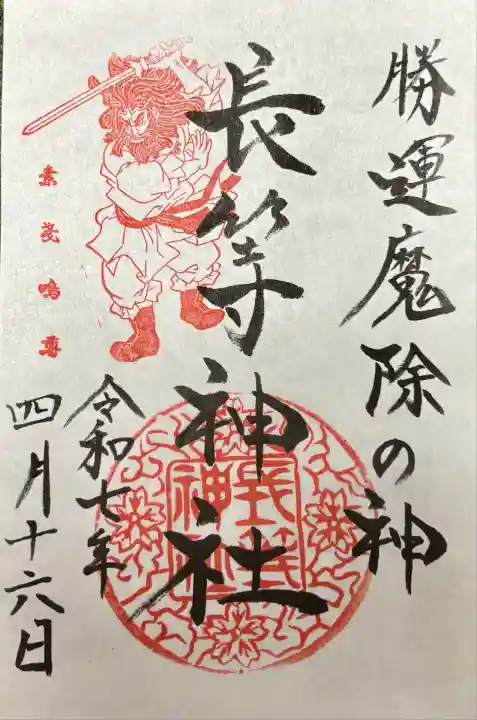 勝運魔除の神
長等神社
長等
神社
令和七年
四月十六日
素戔嗚尊